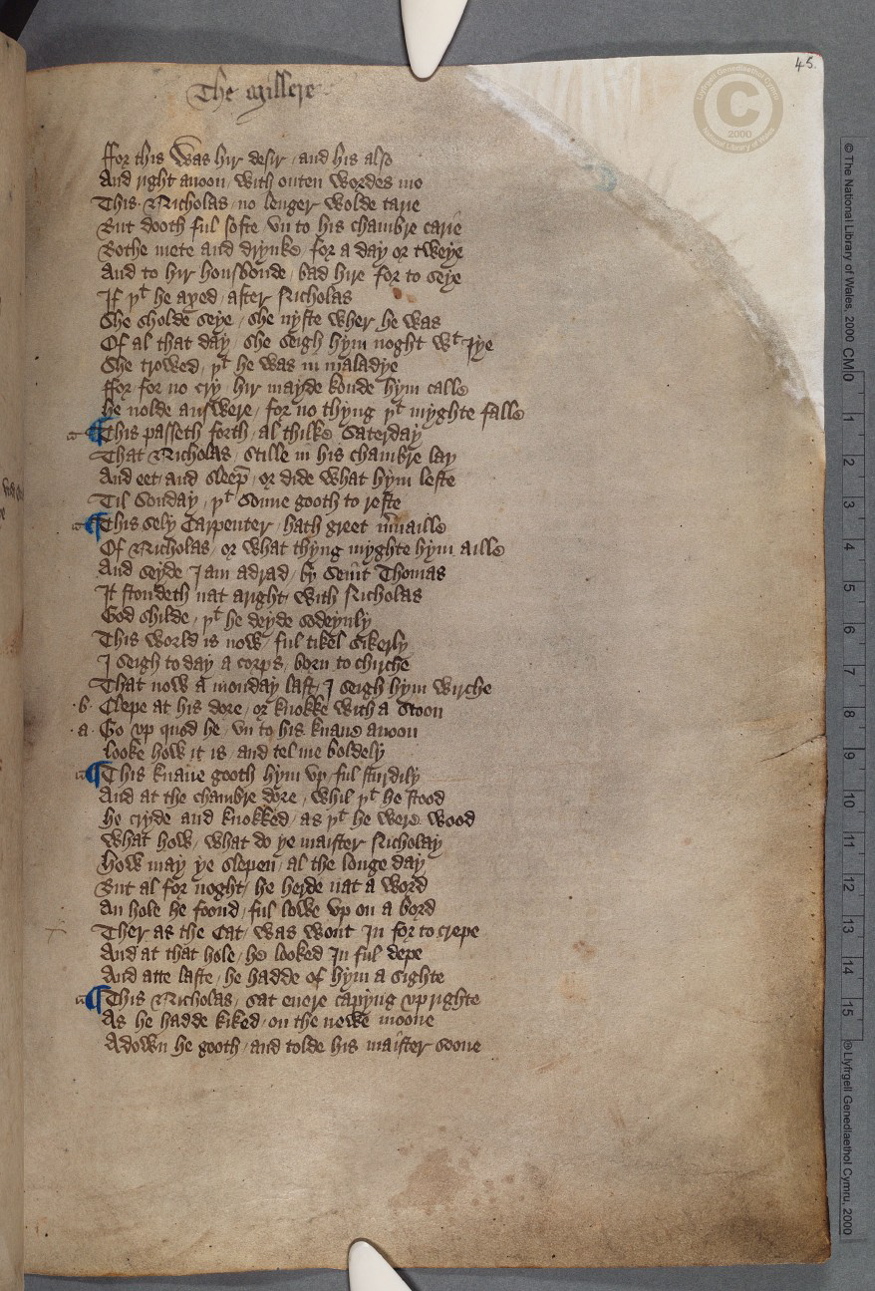 The Millere
45.
ffor this was hir desir / and his also
And right anoon / with outen wordes mo
This Nicholas / no lenger wolde tarie
But dooth ful softe / vn to his chambre carie
Bothe mete and drynke / for a day or tweye
And to hir housbonde / bad hire for to seye
If þt he axed / after Nicholas
She sholde seye / she nyste wher he was
Of al that day / she seigh hym noght wt Iye
She trowed / þt he was in maladye
ffor for no cry / hir mayde koude hym calle
He nolde answere / for no thyng þt myghte falle
¶ This passeth forth / al thilke Saterday
That Nicholas / stille in his chambre lay
And eet / and sleep / or dide what hym leste
Til Sonday / þt sonne gooth to reste
¶ This sely Carpenter / hath greet m̄uaille
Of Nicholas / or what thyng myghte hym aille
And seyde I am adrad / by Seint Thomas
It stondeth nat aright / with Nicholas
God shilde / þt he deyde sodeynly
This world is now / ful tikel sikerly
I seigh to day a corps / born to chirche
That now a monday last / I seigh hym wirche
·b· Clepe at his dore / or knokke with a stoon
·a· Go vp quod he / vn to his knaue anoon
looke how it is / and tel me boldely
¶ This knaue gooth hym vp / ful sturdily
And at the chambre dore / whil þt he stood
He cryde and knokked / as þt he were wood
What how / what do ye maister Nicholay
How may ye slepen / al the longe day
But al for noght / he herde nat a word
An hole he foond / ful lowe vp on a bord
Ther as the Cat / was wont In for to crepe
And at that hole / he looked In ful depe
And atte laste / he hadde of hym a sighte
¶ This Nicholas / sat euere capyng vp righte
As he hadde kiked / on the newe moone
Adown he gooth / and tolde his maister soone
© The National Library of Wales, 2000
CM
0
1
2
3
4
5
6
7
8
9
10
11
12
13
14
15
® Llyfrgell Genedlaethol Cymru, 2000
C
2000